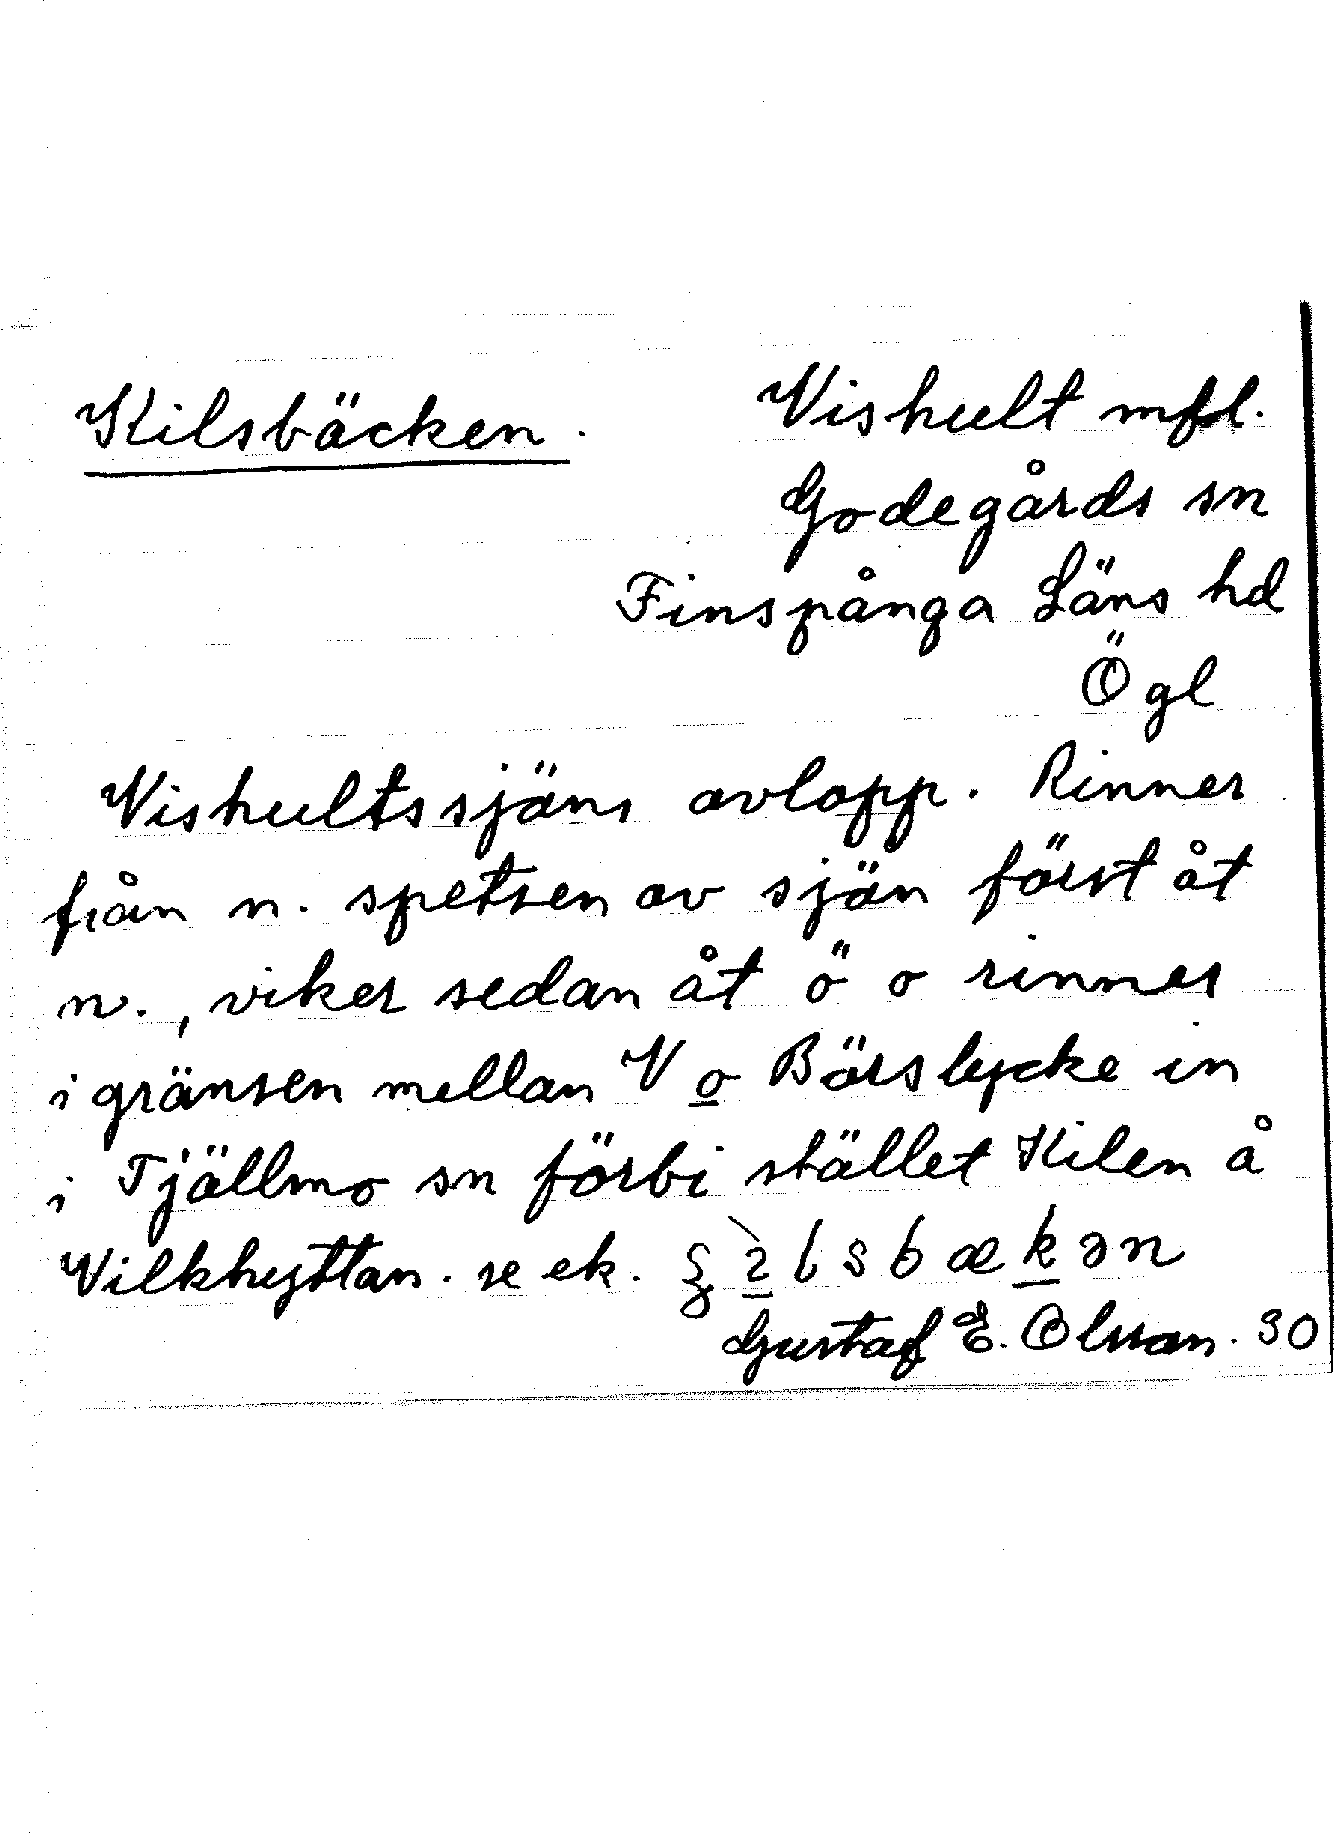 Kilsbäcken.
Vishult mfl.
Godegårds sn
Finspånga Läns hd
Ögl
Vishultssjäns avlopp. Rinner
från n. spetsen av sjön först åt
n., viker sedan åt ö o rinner
i gränsen mellan V o Börslycke in
i Tjällmo sn förbi stället Kilen å
Vilkhyttan. se ek.
Gustaf E. Olsson. 30